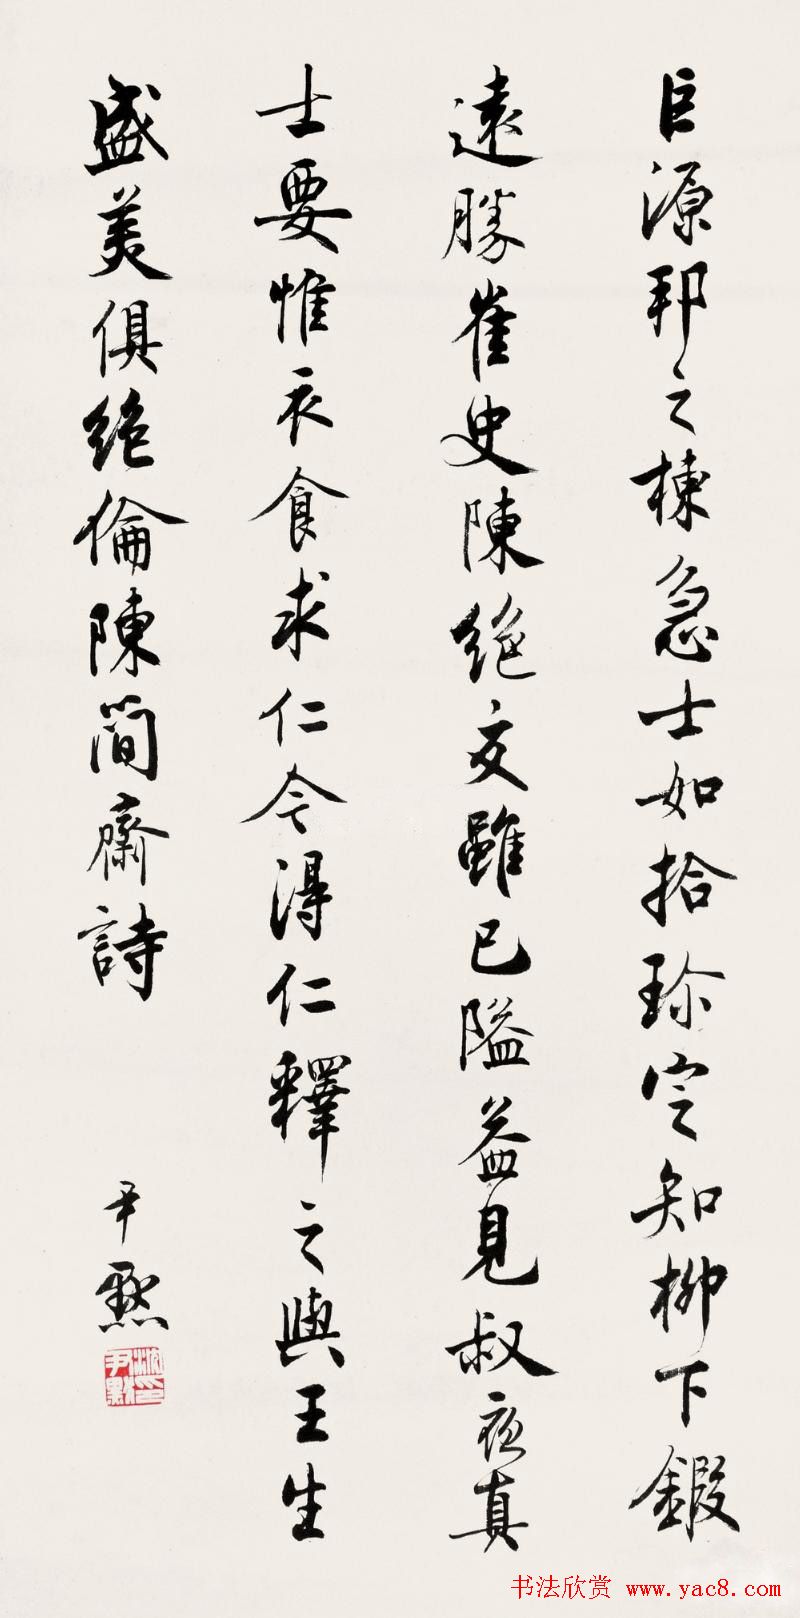 巨源邦之棟急士如拾珍定知柳下鍛
遠勝崔史陳絶交雖已隘益見叔夜真
士要惟衣食求仁今得仁釋之與王生
盛美俱絶倫陳簡齋詩
尹默
沈尹默印
书法欣赏 www.yac8.com